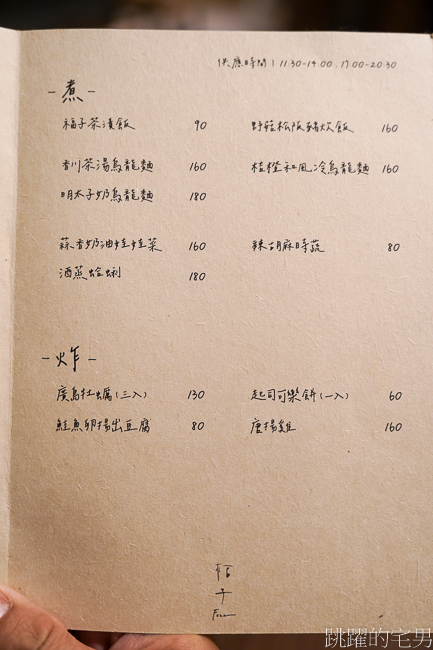 供應時間 | 11:30-14:00 . 17:00-20:30
- 煮 -
福子茶漬飯 90
野菇松阪豬炊飯 160
香川茶湯烏龍麵 160
桔橙和風冷烏龍麵 160
明太子奶烏龍麵 180
蒜香奶油娃娃菜 160
辣胡麻時蔬 80
酒蒸蛤蜊 180
- 炸 -
廣島牡蠣(三入) 130
起司可樂餅(一入) 60
鮭魚卵揚出豆腐 80
唐揚雞 160
跳躍的宅男